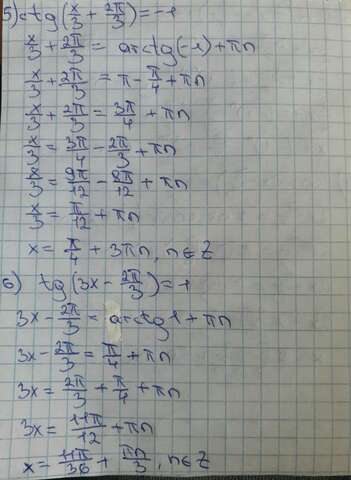 5) ctg(x/3 + 2π/3) = -1
x/3 + 2π/3 = arcctg(-1) + πn
x/3 + 2π/3 = π - π/4 + πn
x/3 + 2π/3 = 3π/4 + πn
x/3 = 3π/4 - 2π/3 + πn
x/3 = 9π/12 - 8π/12 + πn
x/3 = π/12 + πn
x = π/4 + 3πn, n∈Z
6) tg(3x - 2π/3) = 1
3x - 2π/3 = arctg1 + πn
3x - 2π/3 = π/4 + πn
3x = 2π/3 + π/4 + πn
3x = 11π/12 + πn
x = 11π/36 + πn/3, n∈Z